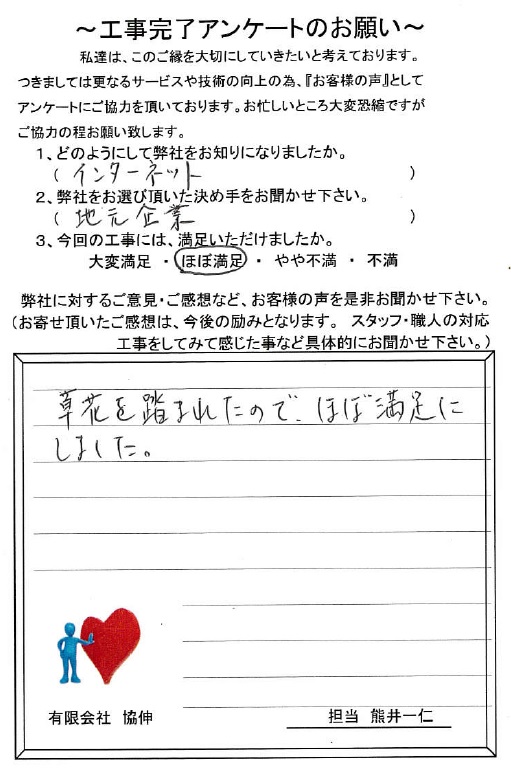 ～工事完了アンケートのお願い～
私達は、このご縁を大切にしていきたいと考えております。
つきましては更なるサービスや技術の向上の為、『お客様の声』として
アンケートにご協力を頂いております。お忙しいところ大変恐縮ですが
ご協力の程お願い致します。
1、どのようにして弊社をお知りになりましたか。
( インターネット )
2、弊社をお選び頂いた決め手をお聞かせ下さい。
( 地元企業 )
3、今回の工事には、満足いただけましたか。
大変満足 ・ ほぼ満足 ・ やや不満 ・ 不満
弊社に対するご意見・ご感想など、お客様の声を是非お聞かせ下さい。
(お寄せ頂いたご感想は、今後の励みとなります。 スタッフ・職人の対応
工事をしてみて感じた事など具体的にお聞かせ下さい。)
草花を踏まれたので、ほぼ満足に
しました。
有限会社 協伸
担当 熊井一仁